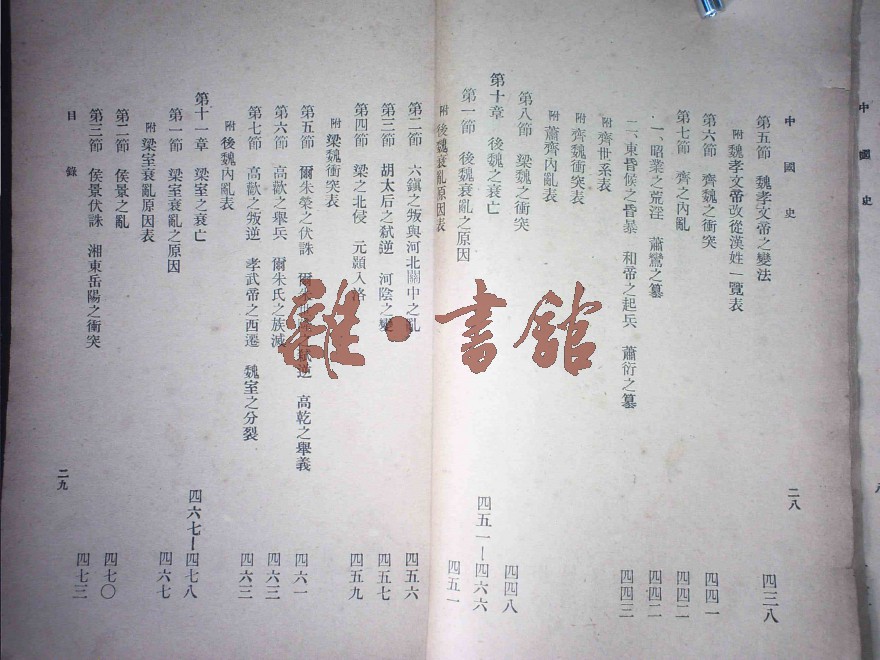 中國史
二八
第五節 魏孝文帝之變法 四三八
附 魏孝文帝改從漢姓一覽表
第六節 齊魏之衝突 四四一
第七節 齊之內亂 四四二
一、昭業之荒淫 蕭鸞之篡 四四二
二、東昏候之昏暴 和帝之起兵 蕭衍之篡 四四三
附 齊世系表
附 齊魏衝突表
附 蕭齊內亂表
第八節 梁魏之衝突 四四八
第十章 後魏之衰亡 四五一—四六六
第一節 後魏衰亂之原因 四五一
附 後魏衰亂原因表
第二節 六鎭之叛與河北關中之亂 四五六
第三節 胡太后之弒逆 河陰之變 四五七
第四節 梁之北侵 元顥入洛 四五九
附 梁魏衝突表
第五節 爾朱榮之伏誅 爾朱世隆之弒逆 高乾之舉義 四六一
第六節 高歡之舉兵 爾朱氏之族滅 四六三
第七節 高歡之叛逆 孝武帝之西遷 魏室之分裂 四六三
附 後魏內亂表
第十一章 梁室之衰亡 四六七—四七八
第一節 梁室衰亂之原因 四六七
附 梁室衰亂原因表
第二節 侯景之亂 四七〇
第三節 侯景伏誅 湘東岳陽之衝突 四七三
目錄
二九
中國史
雜·書館